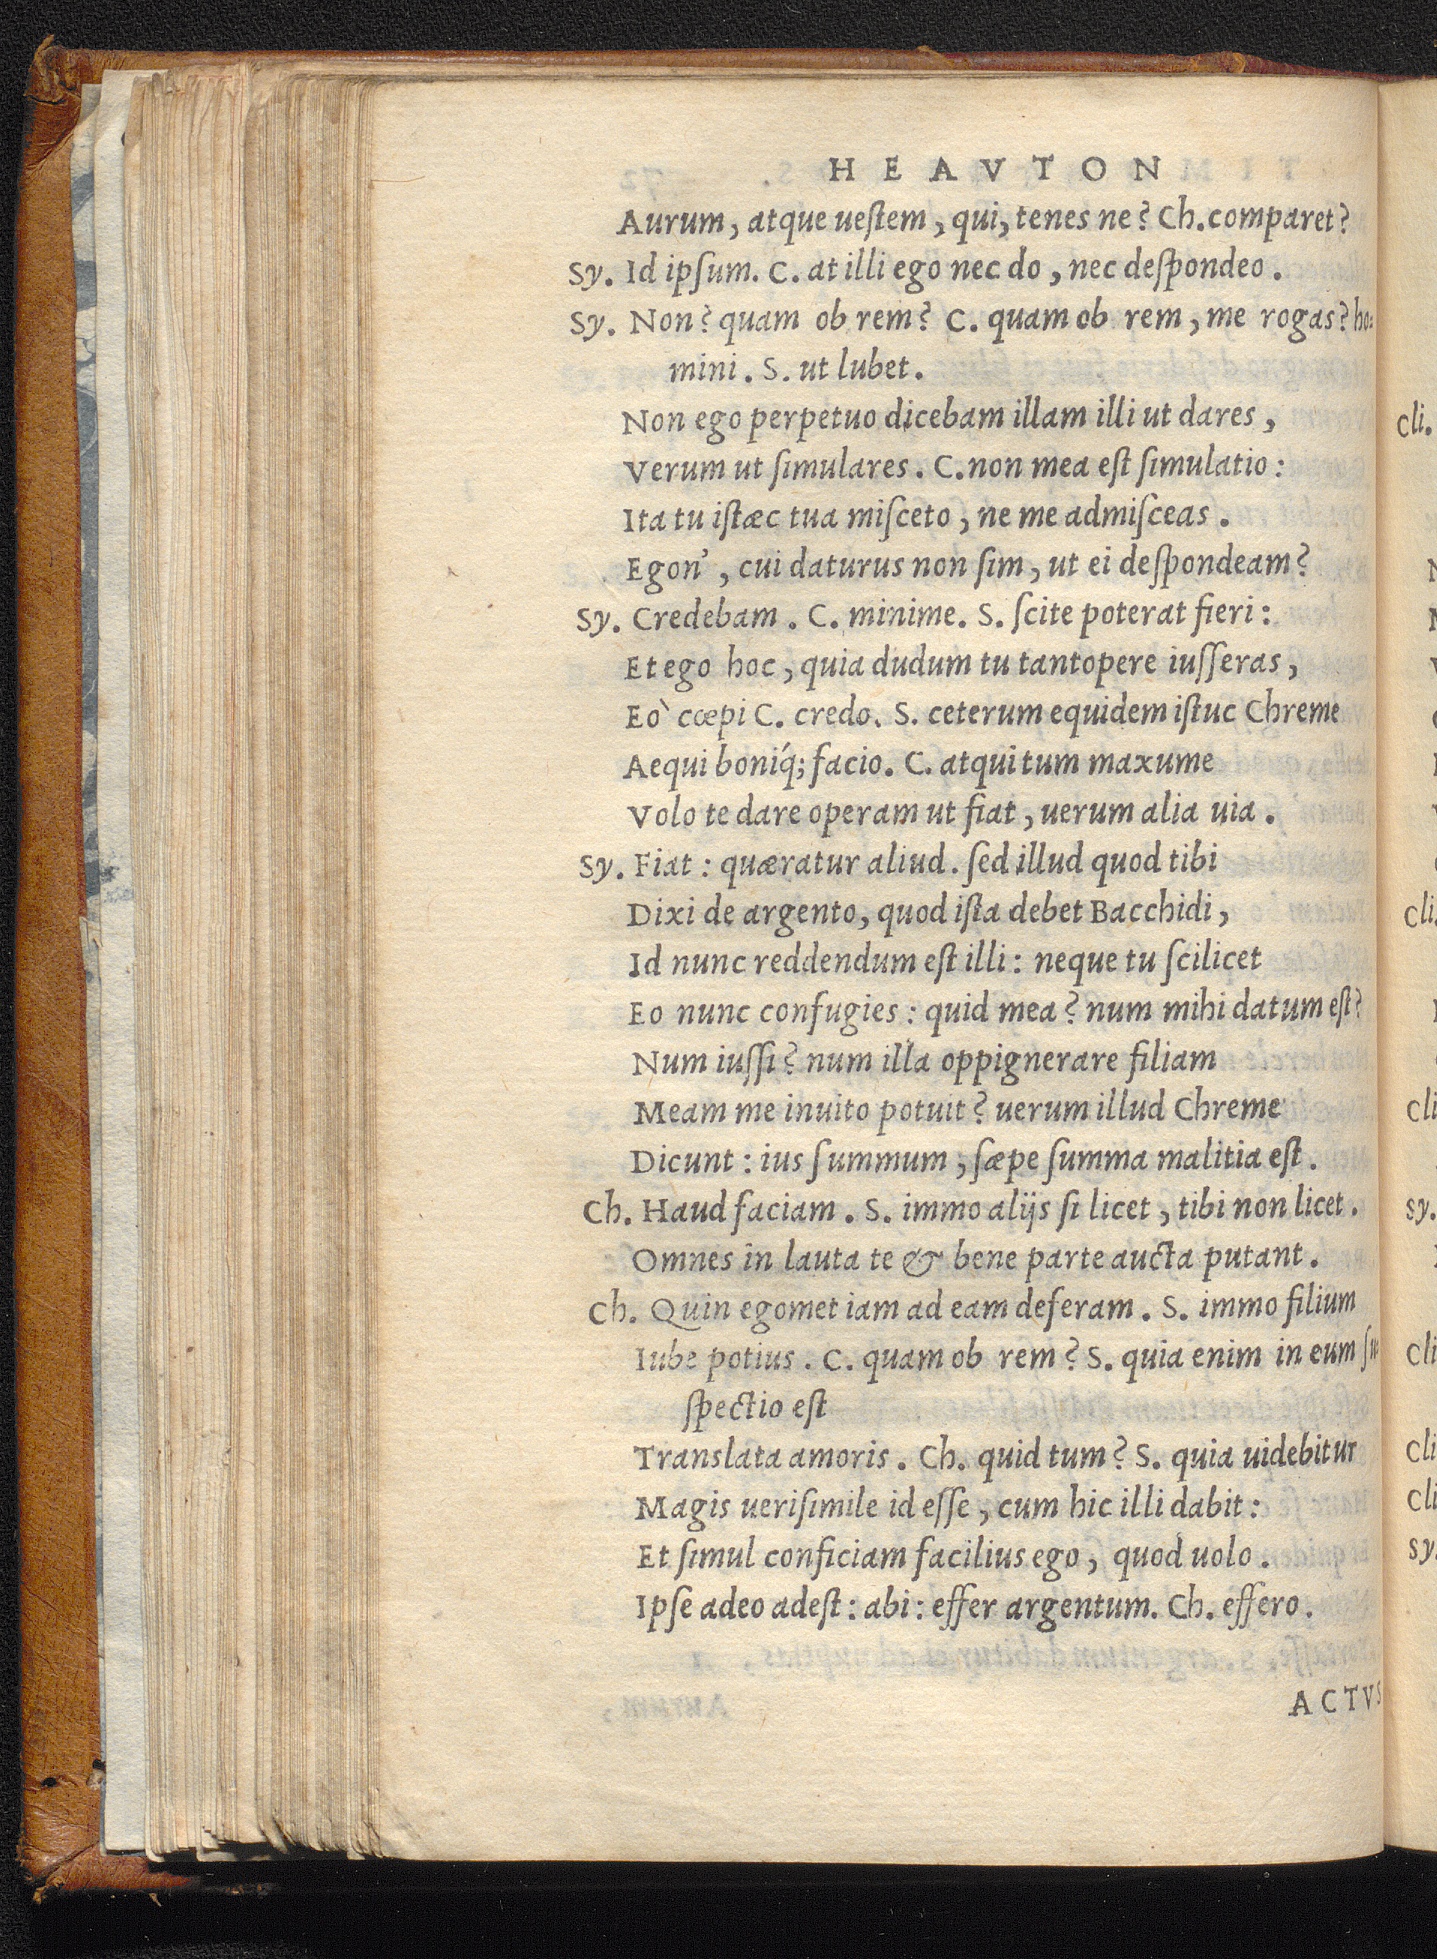 HEAVTON
Aurum, atque ueſtem, qui, tenes ne? Ch. comparet?
Sy. Id ipſum. C. at illi ego nec do, nec deſpondeo.
Sy. Non? quam ob rem? C. quam ob rem, me rogas? ho-
mini. S. ut lubet.
Non ego perpetuo dicebam illam illi ut dares,
Verum ut ſimulares. C. non mea eſt ſimulatio:
Ita tu iſtæc tua miſceto, ne me admiſceas.
Egon', cui daturus non ſim, ut ei deſpondeam?
Sy. Credebam. C. minime. S. ſcite poterat fieri:
Et ego hoc, quia dudum tu tantopere iuſſeras,
Eò cœpi C. credo. S. ceterum equidem iſtuc Chreme
Aequi boniq́; facio. C. atqui tum maxume
Volo te dare operam ut fiat, uerum alia uia.
Sy. Fiat: quæratur aliud. ſed illud quod tibi
Dixi de argento, quod iſta debet Bacchidi,
Id nunc reddendum eſt illi: neque tu ſcilicet
Eo nunc confugies: quid mea? num mihi datum eſt?
Num iuſſi? num illa oppignerare filiam
Meam me inuito potuit? uerum illud Chreme
Dicunt: ius ſummum, ſæpe ſumma malitia eſt.
Ch. Haud faciam. S. immo alijs ſi licet, tibi non licet.
Omnes in lauta te & bene parte aucta putant.
Ch. Quin egomet iam ad eam deferam. S. immo filium
Iube potius. C. quam ob rem? S. quia enim in eum ſu
ſpectio eſt
Translata amoris. Ch. quid tum? S. quia uidebitur
Magis ueriſimile id eſſe, cum hic illi dabit:
Et ſimul conficiam facilius ego, quod uolo.
Ipſe adeo adeſt: abi: effer argentum. Ch. effero.
ACTVS
Cli.
Cli.
Cli
Sy.
Cli
Cli
Cli
Sy.